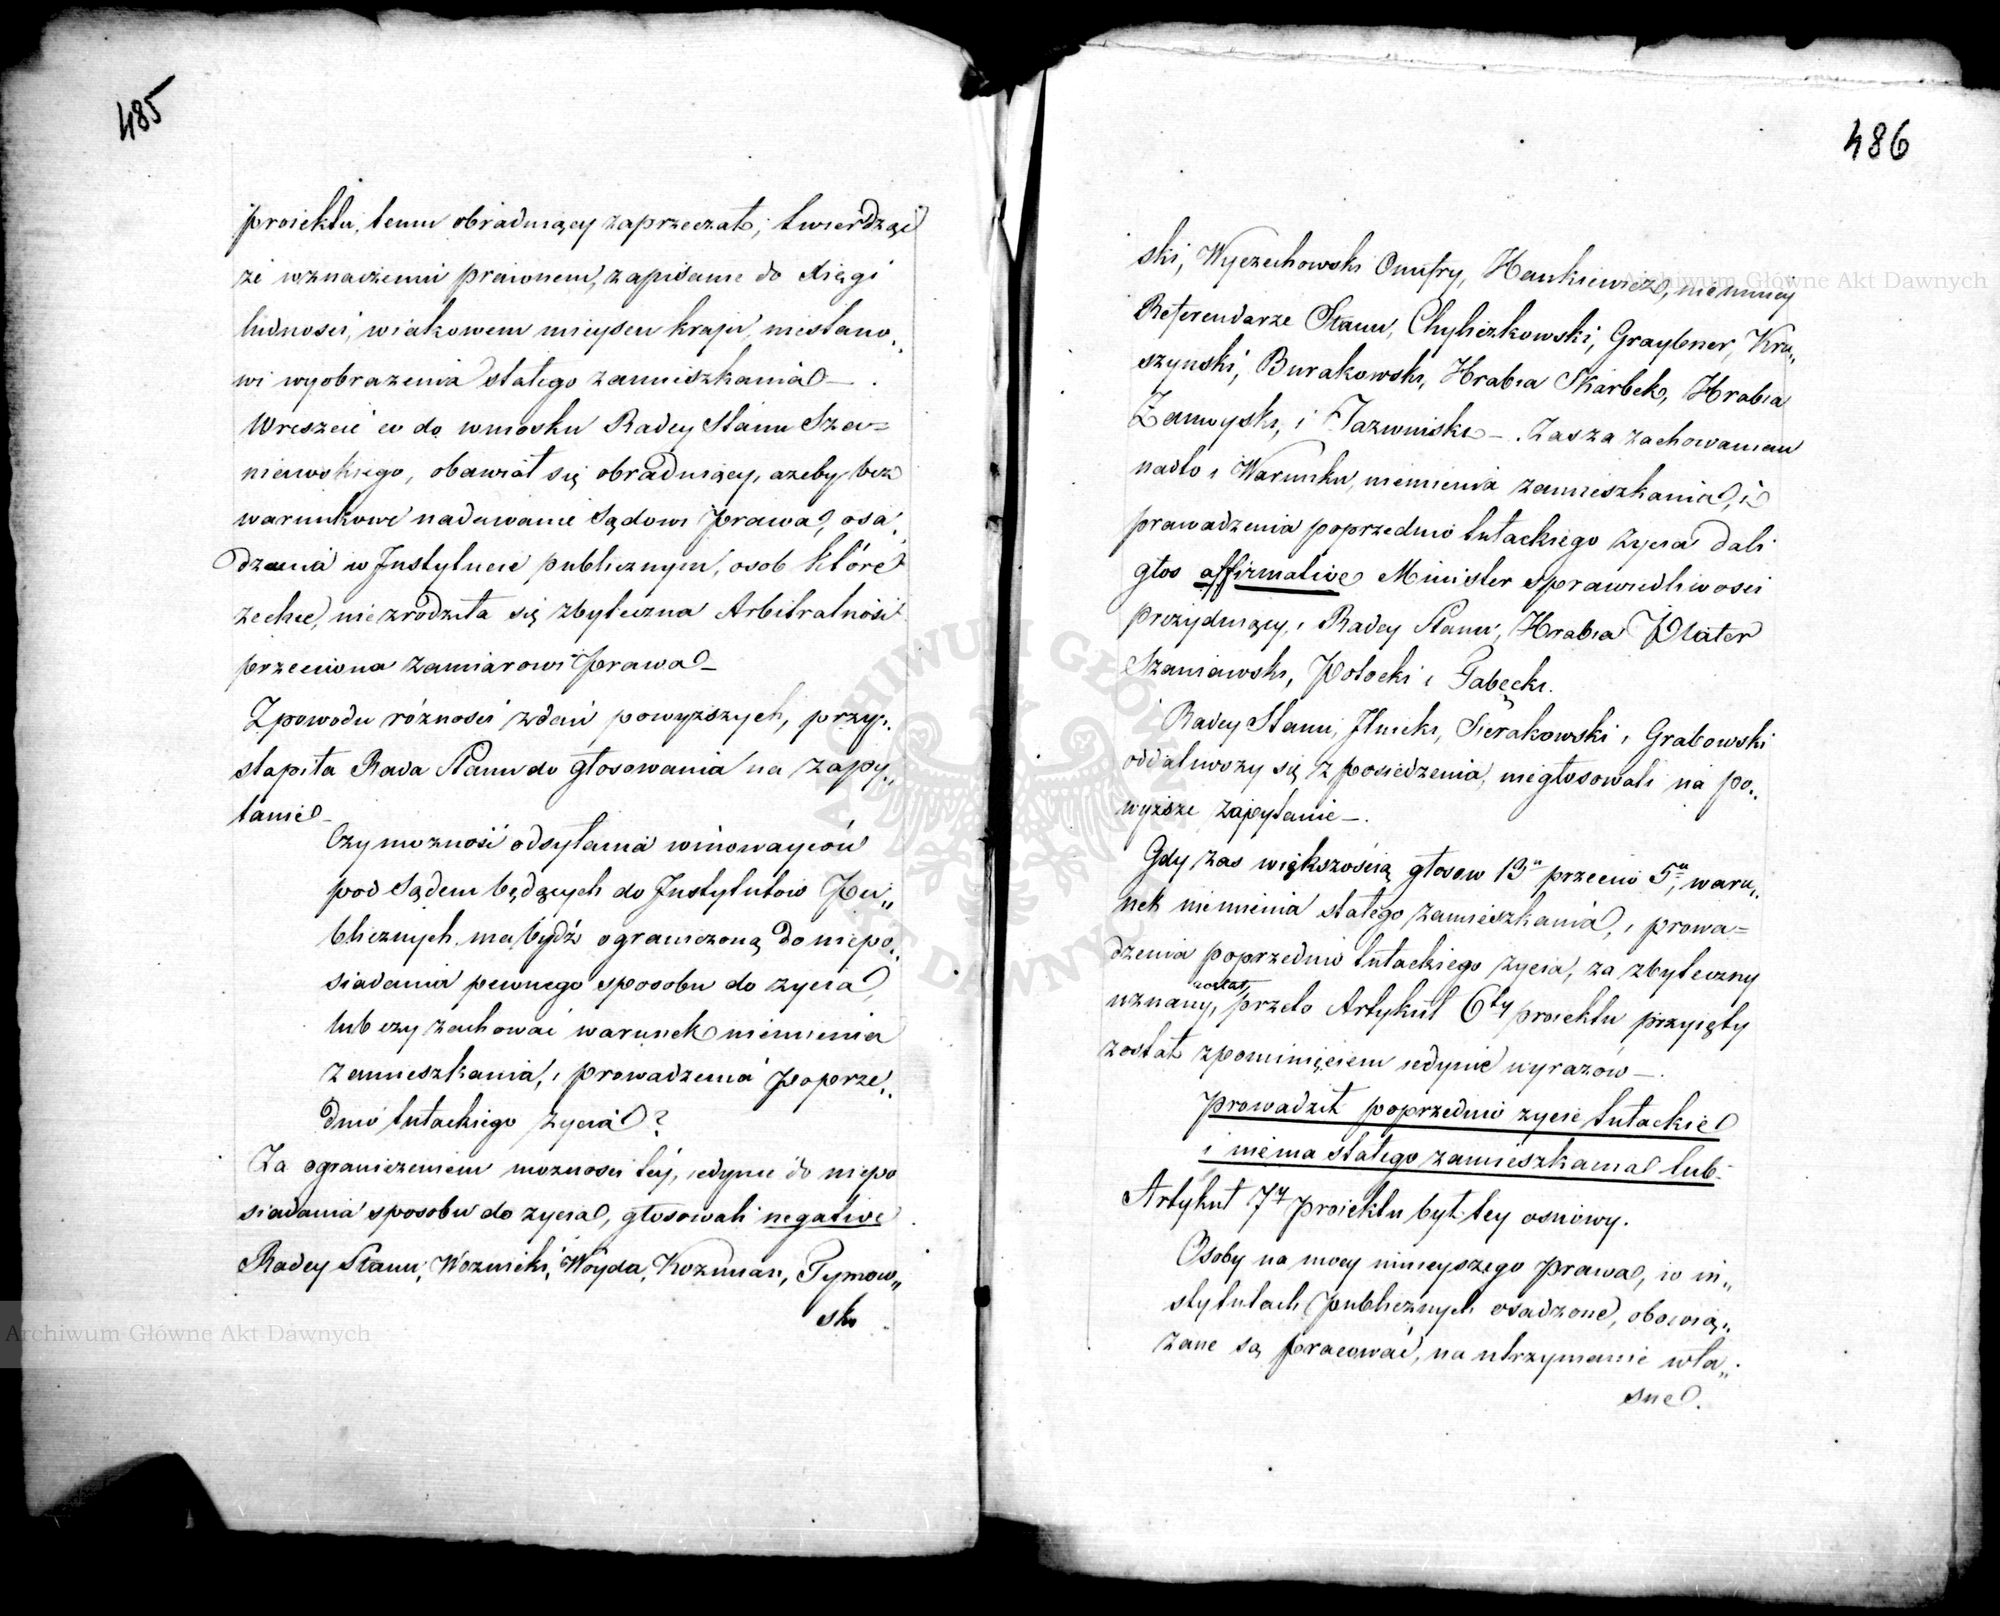 485
proiektu, temu obraduiący zaprzeczał, twierdząc
że w znaczeniu prawnem, zapisanie do Xięgi
ludności, w iakowem mieyscu kraju, niestano„
wi wyobrażenia stałego zamieszkania –.
Wreszcie co do wniosku Radcy Stanu Sza=
niawskiego, obawiał się obraduiący, ażeby bez
warunkowe nadawanie Sądowi prawa, osa„
dzania w Instytucie publicznym, osob które
zechce, nie zrodziła się zbyteczna Arbitralność
przeciwna zamiarowi prawa –
Z powodu różności zdań powyższych, przy„
stąpiła Rada Stanu do głosowania na zapy„
tanie –
Czy możność odsyłania winowayców
pod Sądem będących do Instytutów Pu„
blicznych ma bydź ograniczoną do niepo„
siadania pewnego sposobu do życia,
lub czy zachować warunek niemienia
zamieszkania, i prowadzenia poprze„
dnio tułackiego życia?
Za ograniczeniem możności téj, iedynie do niepo
siadania sposobu do życia, głosowali negative
Radcy Stanu, Woźnicki, Woyda, Koźmian, Tymow„
ski
486
ski, Wyczechowski Onufry, Hankiewicz, niemniey
Referendarze Stanu, Chyliczkowski, Graybner, Kru„
szyński, Burakowski, Hrabia Skarbek, Hrabia
Zamoyski, i Jaźwiński –. Zaś za zachowaniem
nadto i Warunku, niemienia zamieszkania, i
prawadzenia poprzednio tułackiego życia dali
głos affirmative Minister sprawiedliwości
prezyduiący, i Radcy Stanu, Hrabia Plater
Szaniawski, Potocki i Gabęcki.
Radcy Stanu, Jlnicki, Sierakowski i Grabowski
oddaliwszy się z posiedzenia, niegłosowali na po„
wyższe zapytanie –.
Gdy zaś większością głosow 13u przeciw 5u, waru„
nek niemienia stałego zamieszkania, i prowa=
dzenia poprzednio tułackiego życia, za zbyteczny
został
uznany, przeto Artykuł 6ty proiektu przyięty
został z pominięciem iedynie wyrazów –.
prowadził poprzednio życie tułackie
i niema stałego zamieszkania lub –
Artykuł 7y proiektu był tey osnowy.
Osoby na mocy ninieyszego prawa, w in„
stytutach publicznych osadzone, obowią„
zane są pracować, na utrzymanie wła„
sne.
Archiwum Główne Akt Dawnych
Archiwum Główne Akt Dawnych
ARCHIWUM GŁÓWNE AKT DAWNYCH